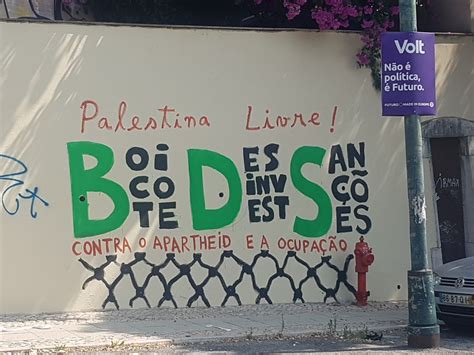 Palestina Livre!
BOI DES SAN
CO INV ÇÕ
TE EST ES
CONTRA O APARTHEID E A OCUPAÇÃO
Volt
Não é
política,
é Futuro.
FUTURO MADE IN EUROPE